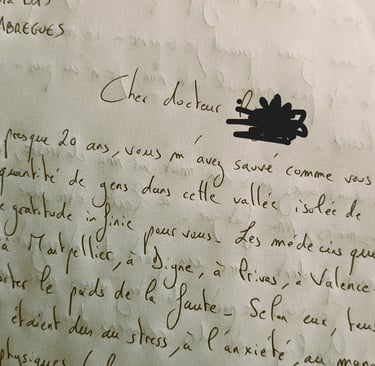 ABREGUES
Cher docteur
presque 20 ans, vous m'avez sauvé comme vous
quantité de gens dans cette vallée isolée de
gratitude infinie pour vous. Les médecins que
à Montpellier, à Digne, à Privas, à Valence
le poids de la faute. Selon eux, tous
étaient dus au stress, à l'anxiété, au man
physiques